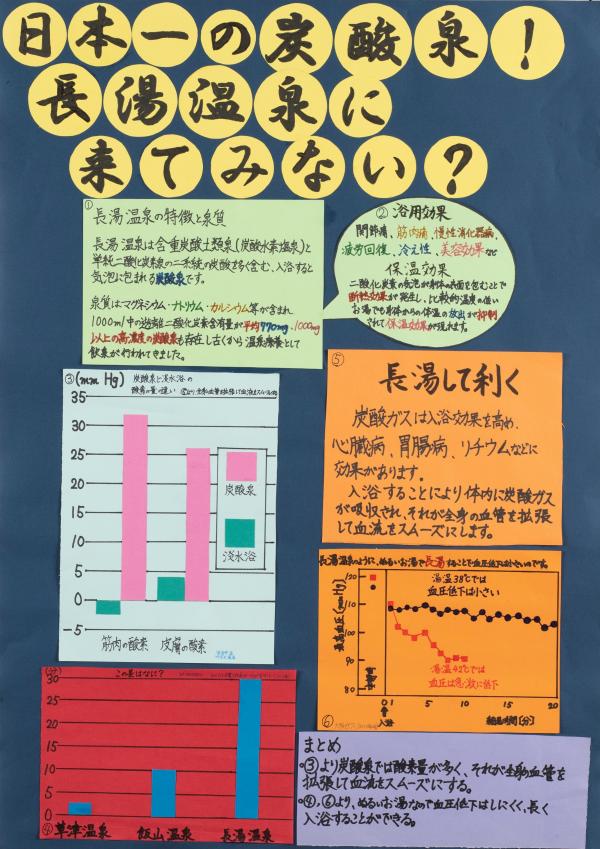 日本一の炭酸泉！
長湯温泉に
来てみない？
①
長湯温泉の特徴と泉質
長湯温泉は含重炭酸土類泉(炭酸水素塩泉)と
単純二酸化炭素泉の二系統の炭酸を多く含む、入浴すると
気泡に包まれる炭酸泉です。
泉質はマグネシウム・ナトリウム・カルシウム等が含まれ
1000ml中の遊離二酸化炭素含有量が平均770mg、1000mg
以上の高濃度の炭酸泉も存在し古くから温泉療養として
飲泉が行われてきました。
② 浴用効果
関節痛、筋肉痛、慢性消化器病、
疲労回復、冷え性、美容効果など
保温効果
二酸化炭素の気泡が身体の表面を包むことで
断熱効果が発生し、比較的温度の低い
お湯でも身体からの体温の放出が抑制
されて保温効果が現れます。
③(mmHg) 炭酸泉と淡水浴の
酸素の量の違い
35
30
25
20
15
10
5
0
-5
炭酸泉
淡水浴
筋肉の酸素 皮膚の酸素
⑤
長湯して利く
炭酸ガスは入浴効果を高め、
心臓病、胃腸病、リチウムなどに
効果があります。
入浴することにより体内に炭酸ガス
が吸収され、それが全身の血管を拡張
して血流をスムーズにします。
長湯温泉のように、ぬるいお湯で長湯することで血圧低下は小さいのです。
最高血圧(mmHg)
120
110
100
90
80
湯温38℃では
血圧低下は小さい
湯温42℃では
血圧は急激に低下
0 1 5 10 15 20
入浴
経過時間[分]
⑥
(分)
この差はなに？
30
25
20
15
10
5
0
④ 草津温泉 飯山温泉 長湯温泉
まとめ
・③より炭酸泉では酸素量が多く、それが全身の血管を
拡張して血流をスムーズにする。
・④,⑥より、ぬるいお湯なので血圧低下はしにくく、長く
入浴することができる。